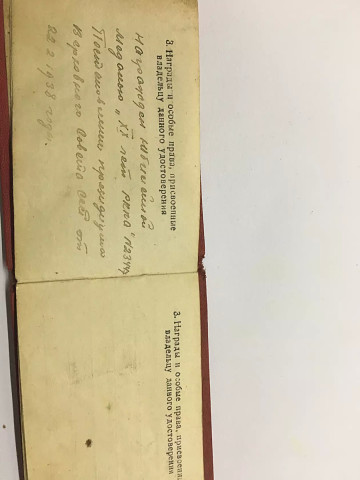 3. Награды и особые права, присвоенные
владельцу данного удостоверения
Награжден юбилейной
медалью „XX лет РККА"
Постановлением президиума
Верховного Совета от
22.2.1938 года.
3. Награды и особые права, присвоенн
владельцу данного удостоверения